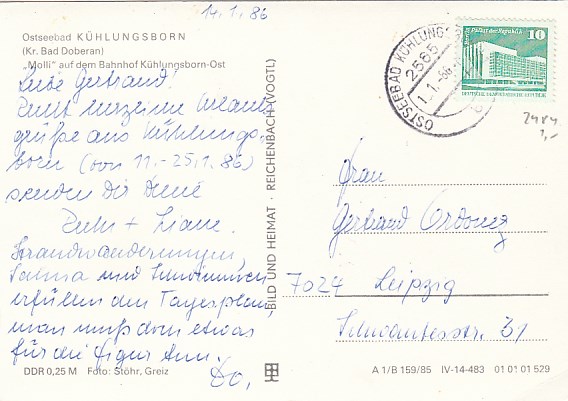 14.1.86
Ostseebad KÜHLUNGSBORN
(Kr. Bad Doberan)
„Molli“ auf dem Bahnhof Kühlungsborn-Ost
Liebe Gertraud!
Urlaubs
grüße aus Kühlungs-
born (vom 11.-25.1.86)
senden Dir Deine
+ Liane.
Strandwanderungen,
Sauna und Schwimmen
erfüllen den Tagesplan,
man muß doch etwas
für die Figur tun.
DDR 0,25 M Foto: Stöhr, Greiz
BILD UND HEIMAT · REICHENBACH (VOGTL)
OSTSEEBAD KÜHLUNGSBORN
2565
Palast der Republik
10
DEUTSCHE DEMOKRATISCHE REPUBLIK
2484
1,-
Frau
7024 Leipzig
31
A 1/B 159/85 IV-14-483 01 01 01 529